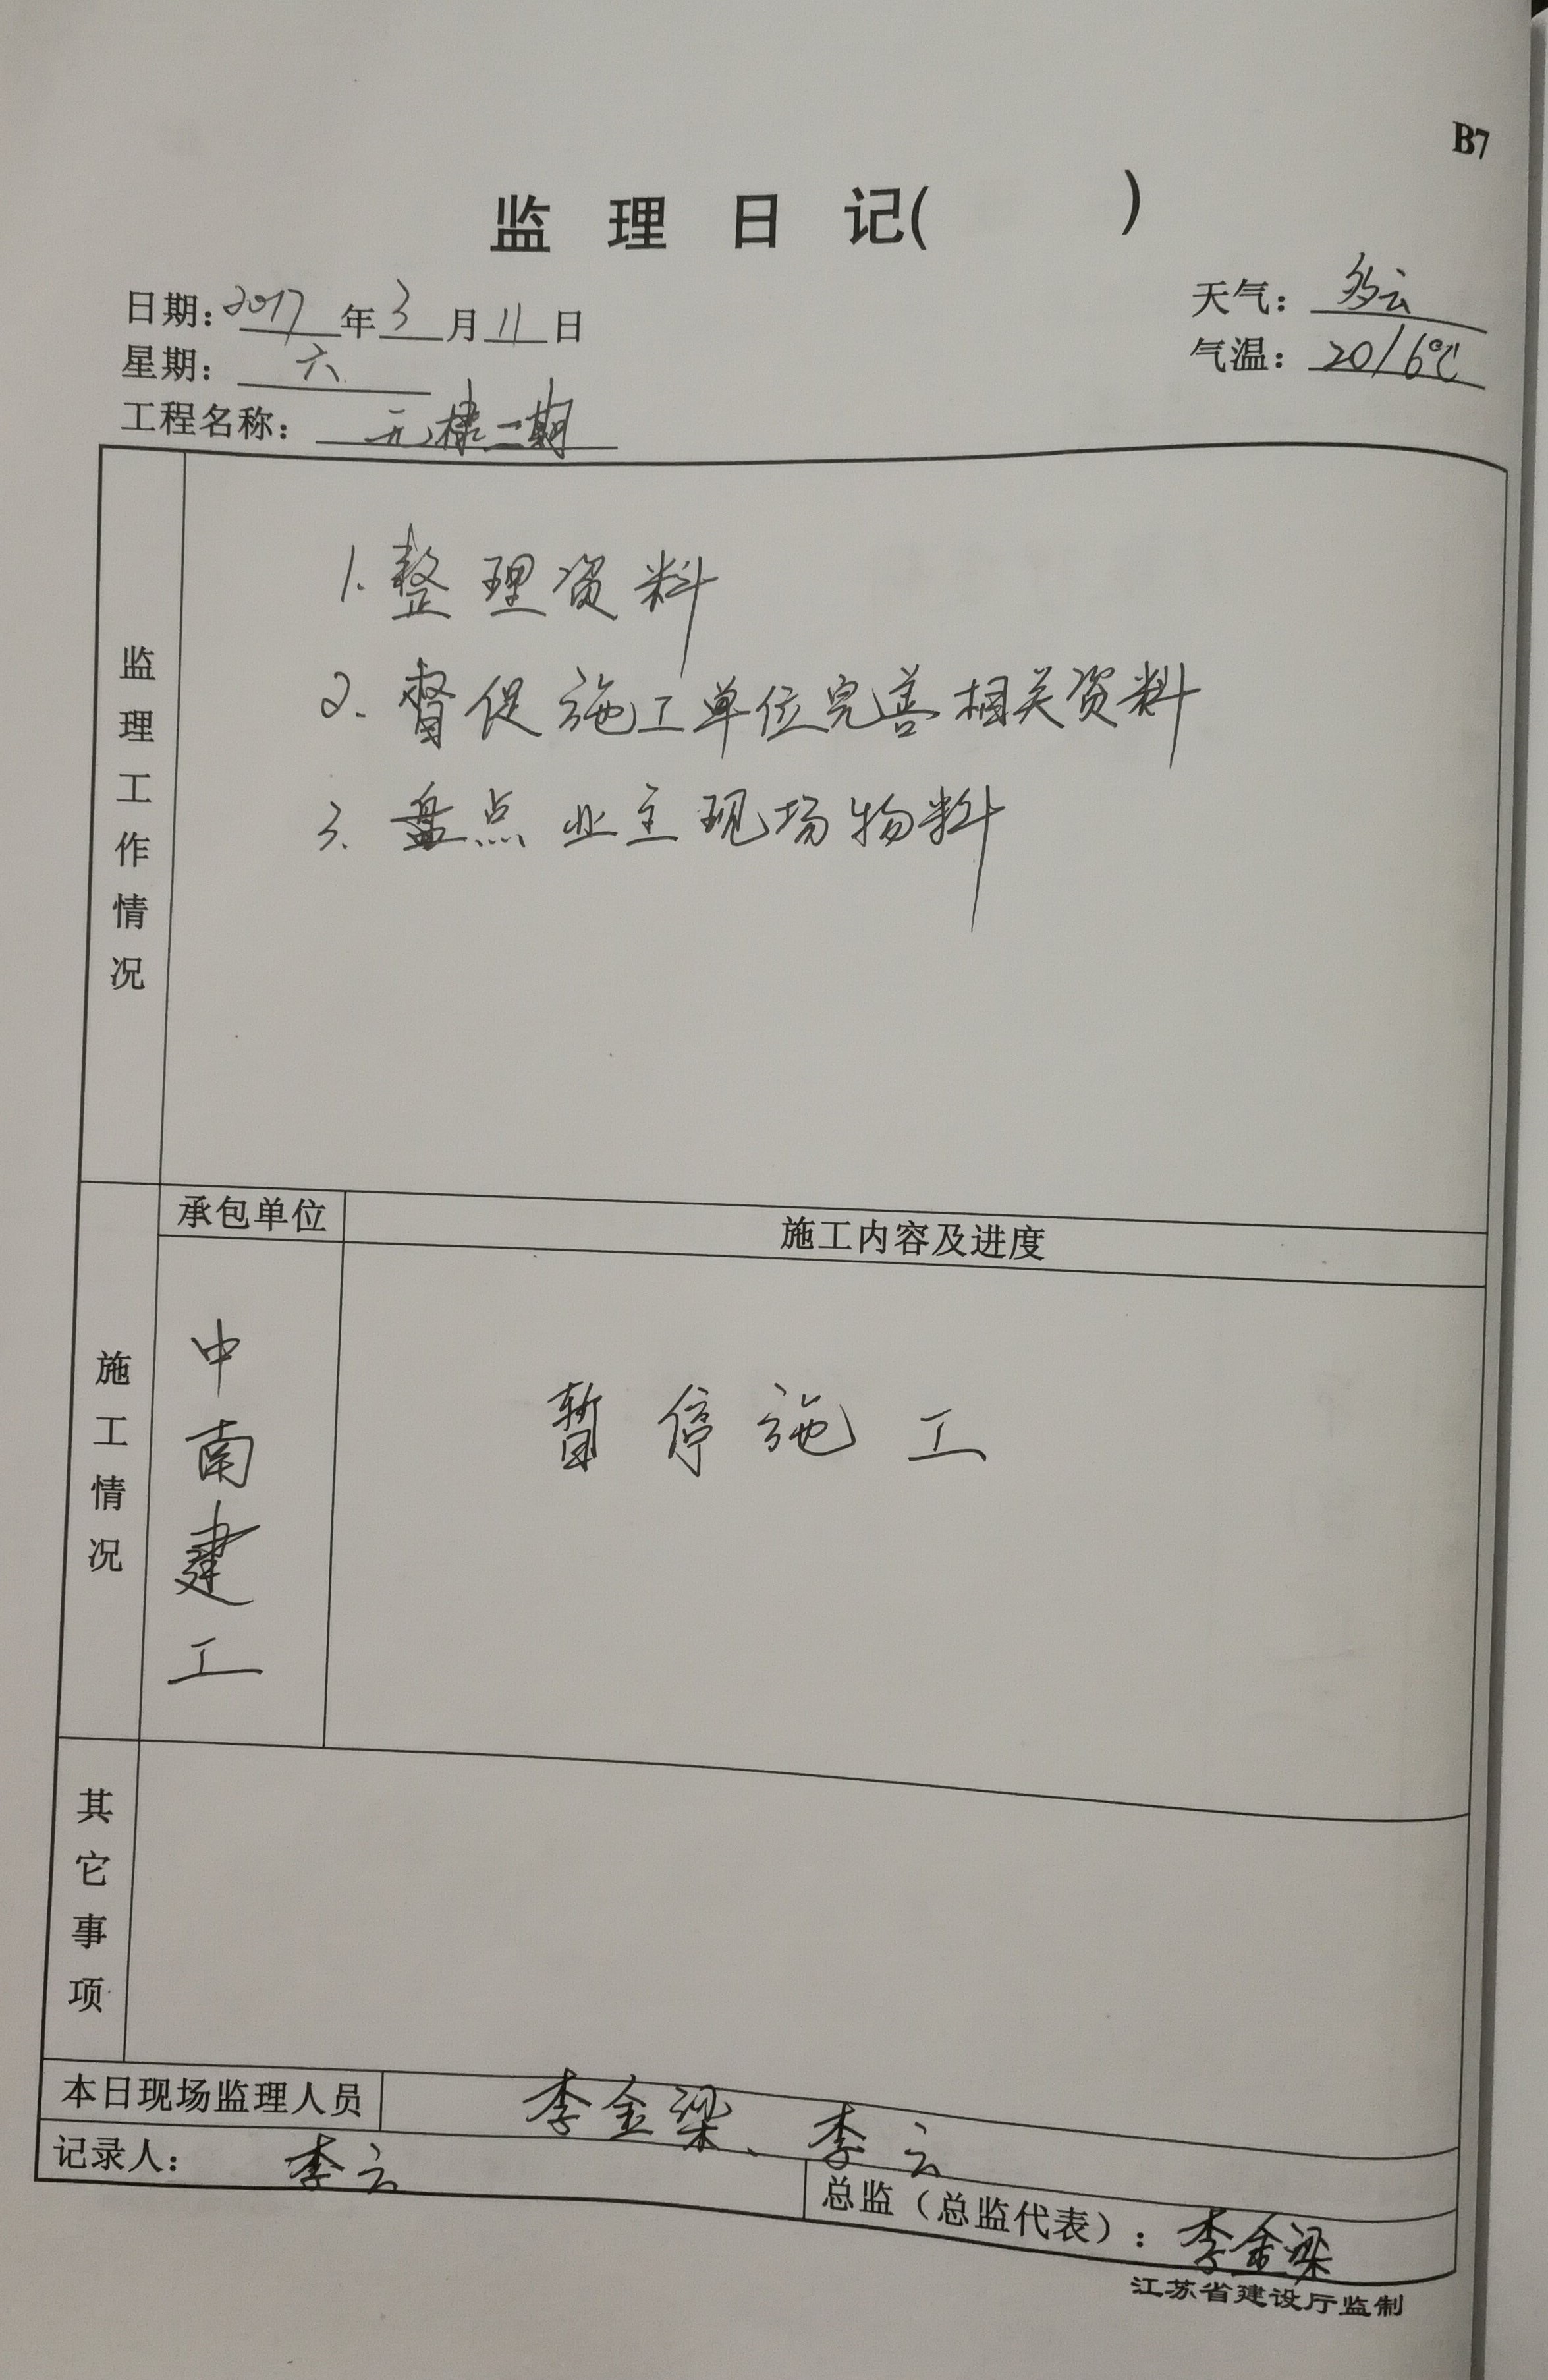 B7
监理日记(　　)
日期: 2017 年 3 月 11 日
天气: 多云
星期: 六
气温: 20/6℃
工程名称: 元棣二期
监理工作情况
1. 整理资料
2. 督促施工单位完善相关资料
3. 盘点业主现场物料
施工情况
承包单位 施工内容及进度
中南建工
暂停施工
其它事项
本日现场监理人员 李金梁、李云
记录人: 李云
总监(总监代表): 李金梁
江苏省建设厅监制